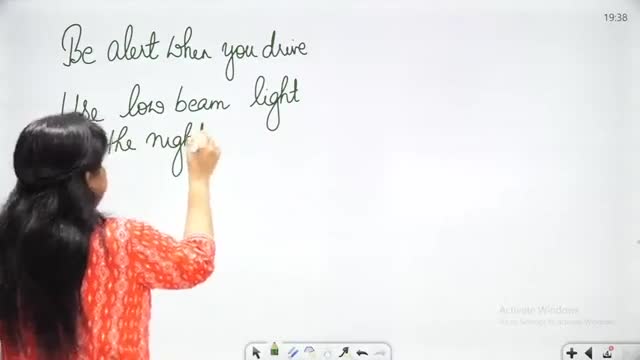 19:38
Be alert when you drive
Use low beam light
the night
Activate Windows
Go to Settings to activate Windows.